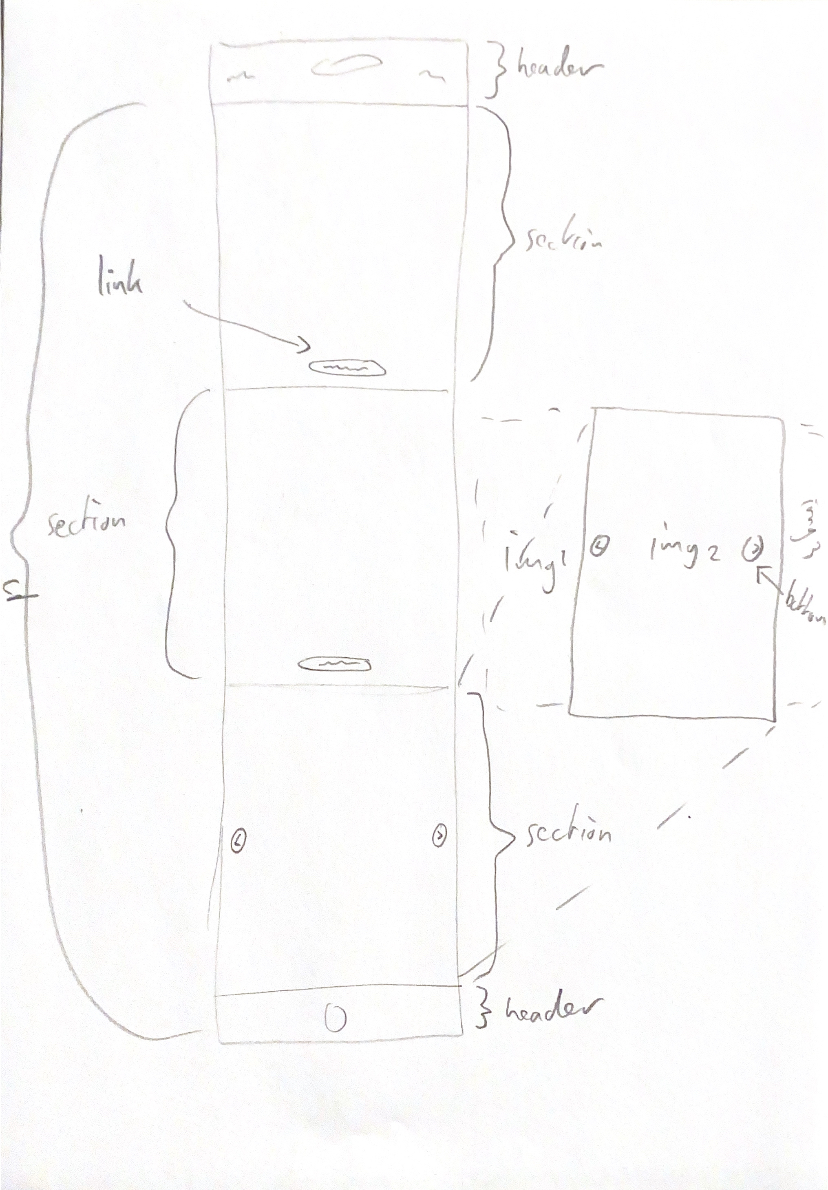 header
section
link
section
img1
img2
button
section
header